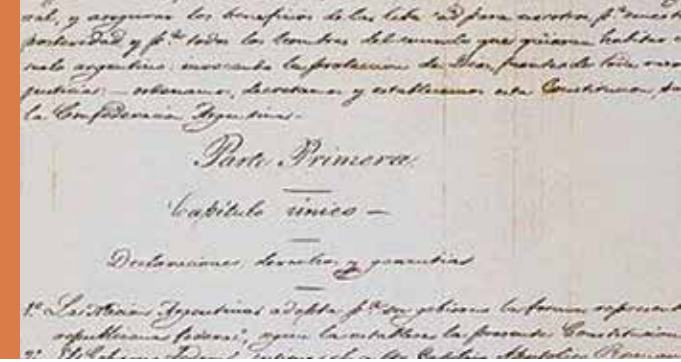 ral, y asegurar los beneficios de la libertad para nosotros pª nuestra
posteridad y pª todos los hombres del mundo que quieran habitar
suelo argentino: invocando la proteccion de Dios, fuente de toda razon
justicia: — ordenamos, decretamos y establecemos esta Constitucion, pa
la Confederacion Argentina.
Parte Primera
Capitulo único —
Declaraciones, derechos y garantias
1º La Nacion Argentina adopta pª su gobierno la forma represent
republicana federal, segun la establece la presente Constitucion
2º El Gobierno Federal sostiene el culto Catolico Apostolico Romano